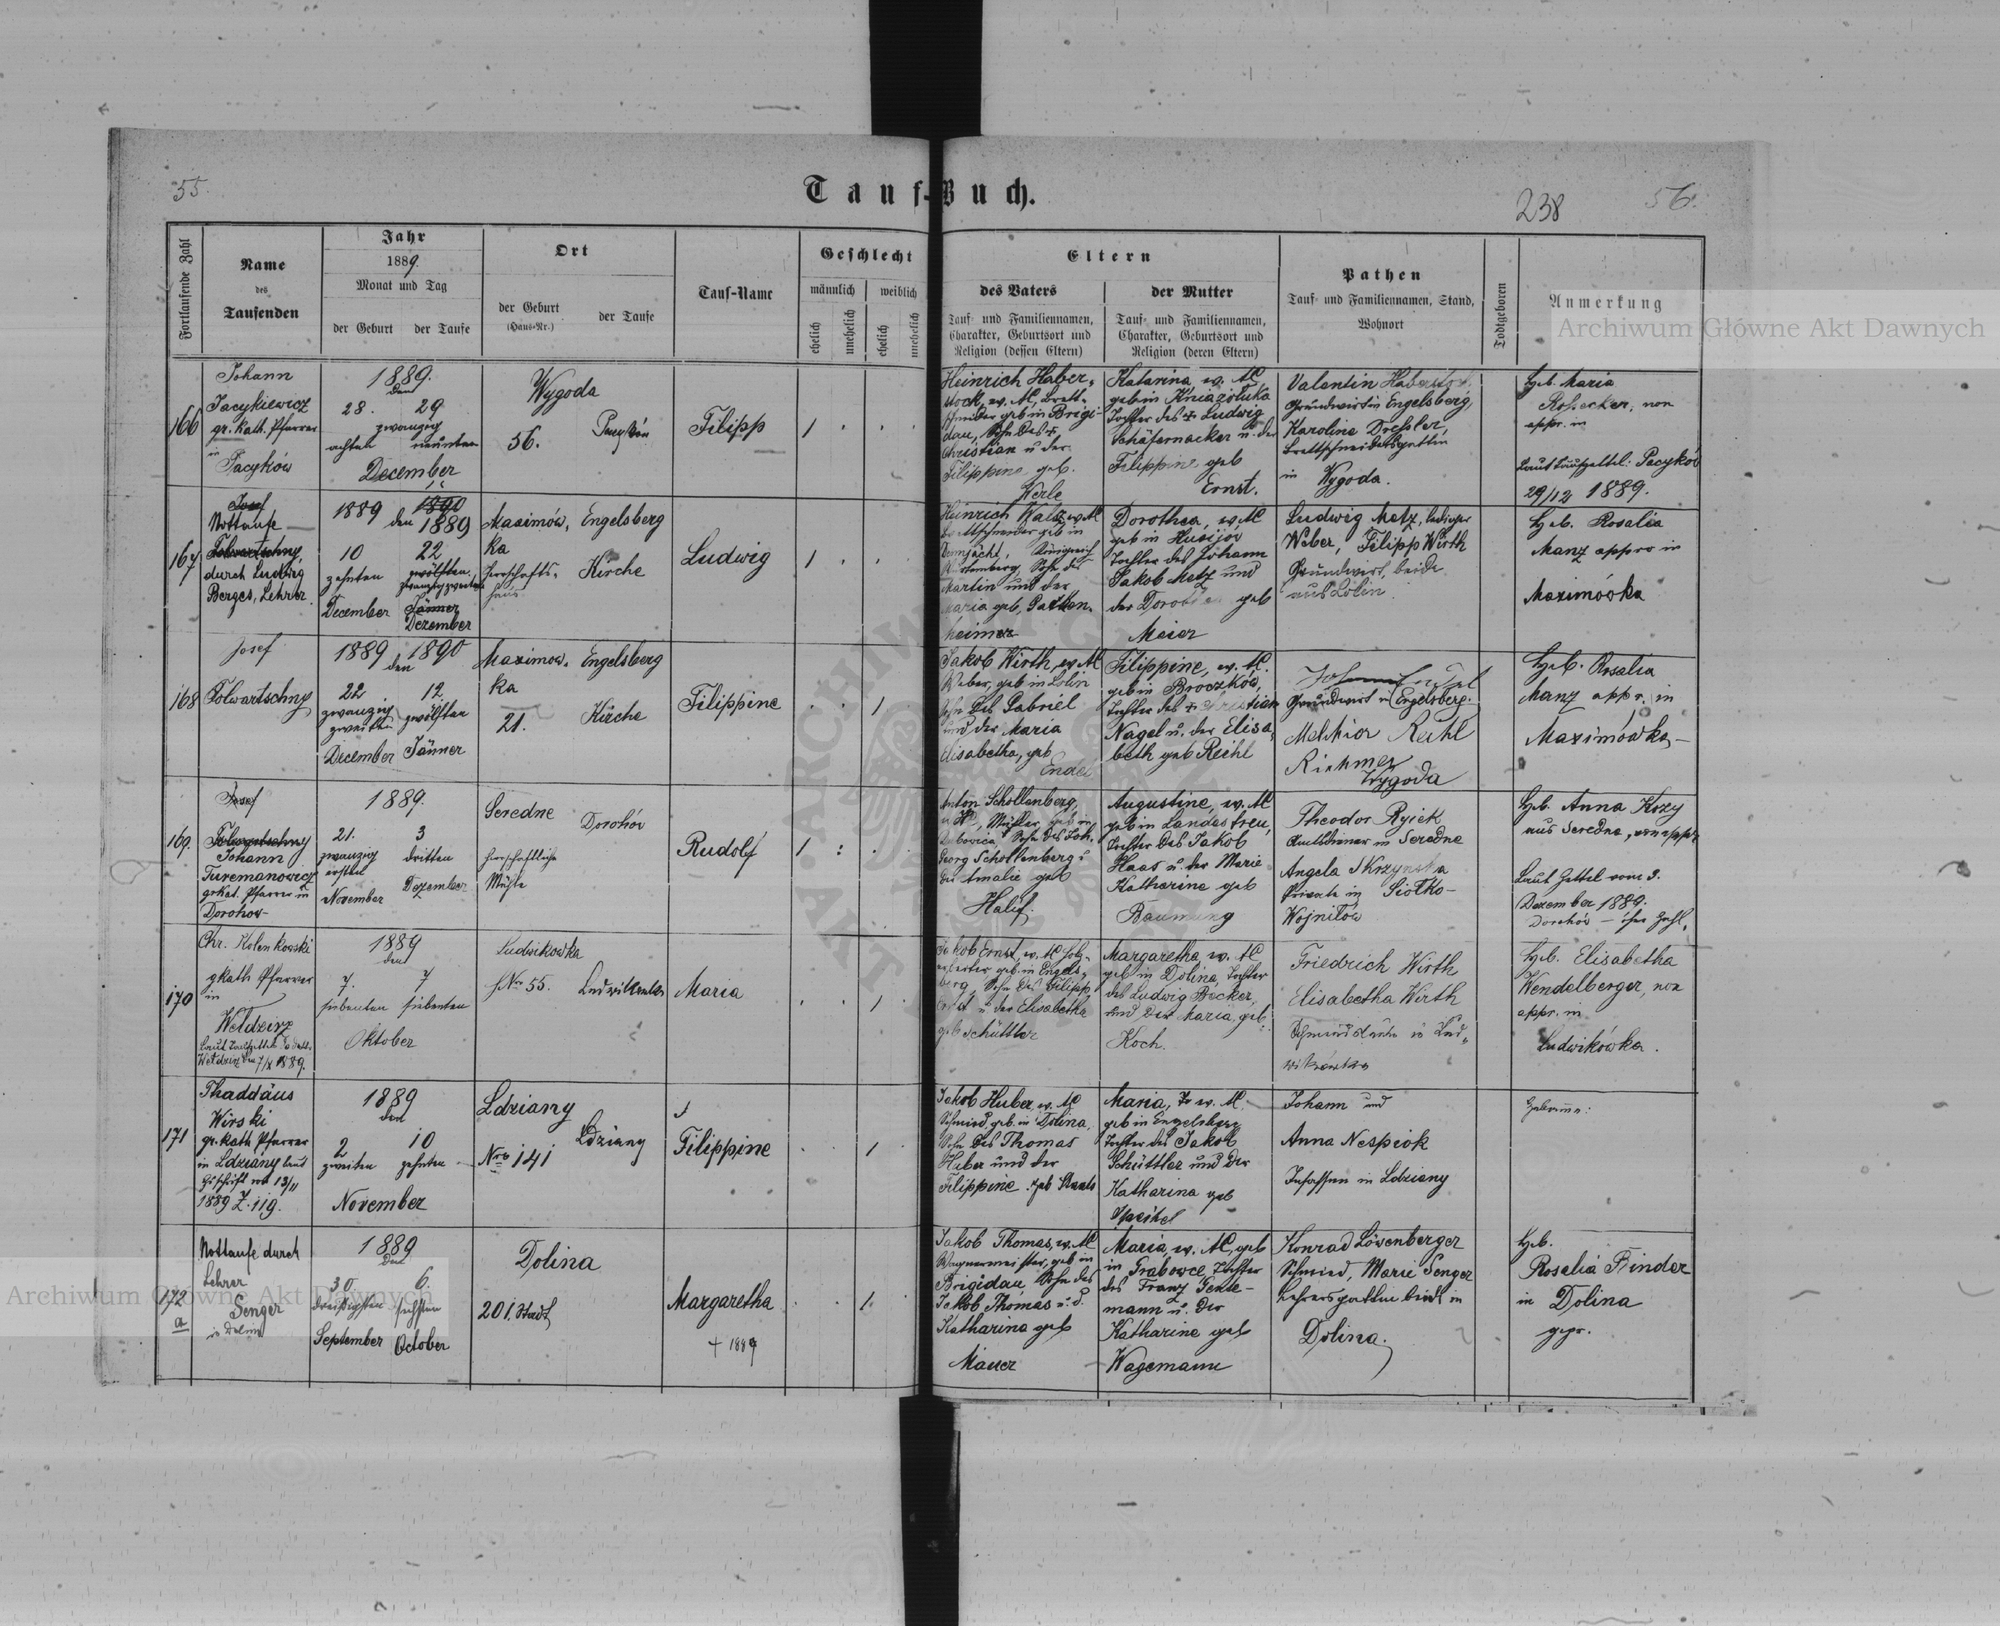 55.
Tauf-Buch.
238
56.
Fortlaufende Zahl
Name
des
Taufenden
Jahr
1889
Monat und Tag
der Geburt
der Taufe
Ort
der Geburt
(Haus-Nr.)
der Taufe
Tauf-Name
Geschlecht
männlich
weiblich
ehelich
unehelich
ehelich
unehelich
Eltern
des Vaters
Tauf- und Familiennamen,
Charakter, Geburtsort und
Religion (dessen Eltern)
der Mutter
Tauf- und Familiennamen,
Charakter, Geburtsort und
Religion (deren Eltern)
Pathen
Tauf- und Familiennamen, Stand,
Wohnort
Todtgeboren
Anmerkung
Archiwum Główne Akt Dawnych
166
Johann
Jacykiewicz
gr. kath. Pfarrer
in
Pacyków
1889.
den
28. 29
zwanzig
achten neunten
December
Wygoda
56.
Filipp
1
Heinrich Haber-
stock, ev. AC, Brett-
schneider geb in Brigi-
dau, Sohn des +
Christian u der
Filippine geb.
Werle
Katarina ev. AC
geb in Kniazoluka
Tochter des + Ludwig
Schäfernacker u. der
Filippine geb
Ernst.
Valentin Haberstock
Grundwirt in Engelsberg,
Karoline Dressler,
Brettschneidersgattin
in Wygoda.
Heb. Maria
Rosecker, non
appr. in
Laut Taufzettel: Pacyków
29/12 1889.
167
Josef
Nottaufe
Folwartschny,
durch Ludwig
Berges, Lehrer
1889 den 1890
1889
10 22
zehnten zwölften
zwanzigzweiten
December Jänner
Dezember
Maximów-
ka
Herrschafts-
haus
Engelsberg
Kirche
Ludwig
1
Heinrich Walz, ev. AC
Brettschneider geb in
Königreich
Würtemberg, Sohn des
Martin und der
Maria geb,
heimer
Dorothea, ev. AC
geb in Husijów
Tochter des Johann
Jakob Metz und
der Dorothea geb
Meier
Ludwig Metz, lediger
Weber, Filipp Wirth
Grundwirt, beide
aus Lolin
Heb. Rosalia
Manz appro in
Maximówka
168
Josef
Folwartschny
1889 den 1890
22 12
zwanzig zwölften
zweiten
December Jänner
Maximow-
ka
21.
Engelsberg
Kirche
Filippine
1
Jakob Wirth, ev. AC
Weber, geb in Lolin
Sohn des Gabriel
und der Maria
Elisabetha, geb
Endel
Filippine, ev. AC.
geb in Broczków,
Tochter des + Christian
Nagel u. der Elisa-
beth geb Reihl
Grundwirt in Engelsberg.
Melchior Reihl
Riehmer
Wygoda
Heb. Rosalia
Manz appr. in
Maximówka
169.
Josef
Folwartschny
Johann
Turemanowicz
gr kat. Pfarrer in
Dorohow
1889.
21. 3
zwanzig dritten
ersten
November Dezember
Seredne
herrschaftliche
Mühle
Dorohów
Rudolf
1
Anton Schollenberg,
Müller, geb in
Sohn des Joh.
Georg Schollenberg u
der Amalie geb
Halif.
Augustine, ev. AC
geb in Landestreu,
Tochter des Jakob
Haas u. der Marie
Katharine geb
Baumung
Theodor Ryiek
Amtsdiener in Seredne
Angela Skrzynska
Private in Siolko-
Wojnilów
Heb. Anna Kozy
aus Seredne, non appr.
Laut Zettel vom 3.
Dezember 1889.
Dorohów – ohne Zahl.
170
Chr. Kolenkowski
gkath Pfarrer
in
Weldzirz
1889
den
7. 7
siebenten siebenten
Oktober
Ludwikowka
Nr. 55.
Ludwikowka
Maria
1
Jakob Ernst, ev. AC Holz-
arbeiter geb in Engels-
berg, Sohn des Filipp
Ernst u der Elisabetha
geb Schüttler
Margaretha ev. AC
geb in Dolina, Tochter
des Ludwig Becker,
und der Maria, geb.
Koch.
Friedrich Wirth
Elisabetha Wirth
Heb. Elisabetha
Wendelberger, non
appr. in
Ludwikówka.
171
Thaddäus
Wirski
gr. kath Pfarrer
in Ldziany laut
Zuschrift v. 13/11
1889 Z. 119.
1889
den
2 10
zweiten zehnten
November
Ldziany
Nro 141
Ldziany
Filippine
1
Jakob Huber, ev. AC
Schmied, geb. in Dolina,
Sohn des Thomas
Huber und der
Filippine geb Staats
Maria, ev. AC.
geb in Engelsberg
Tochter des Jakob
Schüttler und der
Katharina geb
Speichel
Johann und
Anna Nespiok
Insassen in Ldziany
172
a
Nottaufe durch
Lehrer
Senger
in Dolina
1889
den
30 6.
dreißigsten sechsten
September October
Dolina
201. Stadt
Margaretha
+ 1889
1.
Jakob Thomas, ev. AC
Wagnermeister, geb in
Brigidau, Sohn des
Jakob Thomas u. d.
Katharina geb
Mauer
Maria, ev. AC, geb
in Grabowce, Tochter
des Franz Gense-
mann u. der
Katharine geb
Wagemann
Konrad Löwenberger
Schmied, Marie Senger
Lehrersgattin beide in
Dolina.
Heb.
Rosalia Binder
in Dolina
gepr.
Archiwum Główne Akt Dawnych